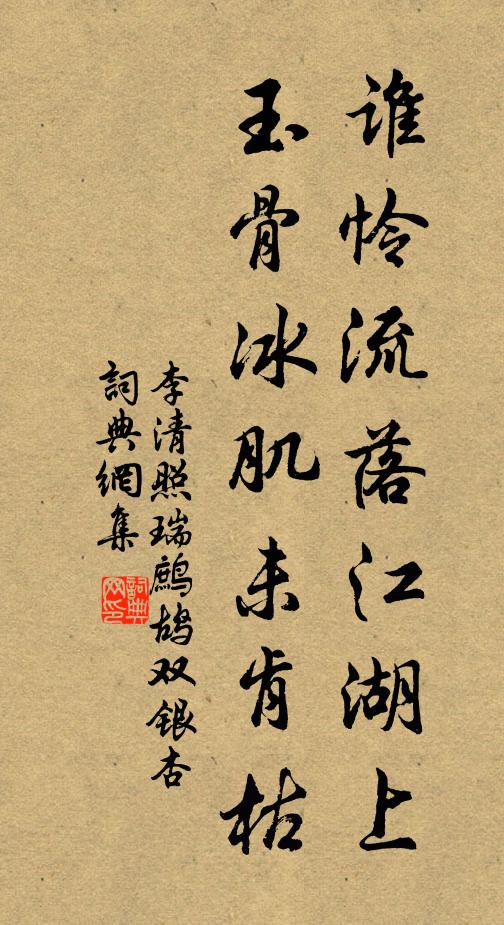 谁怜流落江湖上
玉骨冰肌未肯枯
李清照瑞鷓鸪双银杏
詞典網集
詞典网印